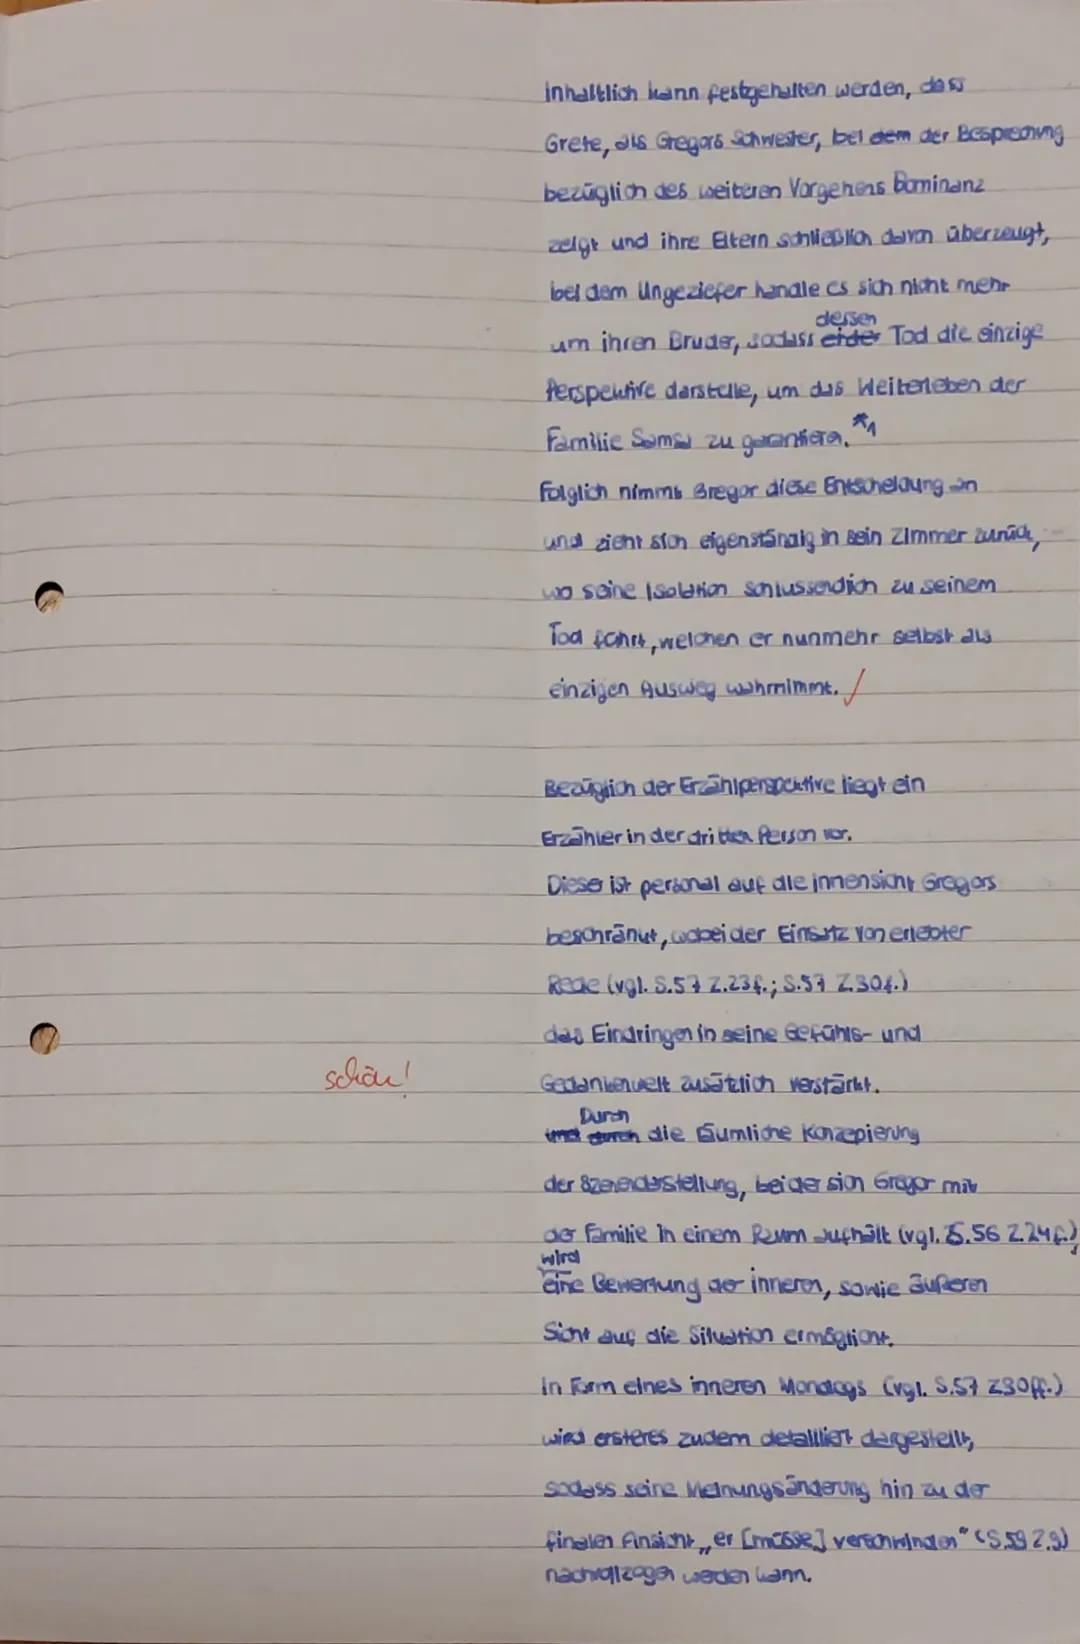 Inhaltlich kann festgehalten werden, dass
Grete, als Gregors Schwester, bei dem der Besprechung
bezüglich des weiteren Vorgehens Dominanz
zeigt und ihre Eltern schließlich davon überzeugt,
bei dem Ungeziefer handle es sich nicht mehr
um ihren Bruder, sodass dessen Tod die einzige
Perspektive darstelle, um das Weiterleben der
Familie Samsa zu garantieren. *1
Folglich nimmt Gregor diese Entscheidung an
und zieht sich eigenständig in sein Zimmer zurück,
wo seine Isolation schlussendlich zu seinem
Tod führt, welchen er nunmehr selbst als
einzigen Ausweg wahrnimmt.
Bezüglich der Erzählperspektive liegt ein
Erzähler in der dritten Person vor.
Dieser ist personal auf die Innensicht Gregors
beschränkt, wobei der Einsatz von erlebter
Rede (vgl. S.57 Z.23f.; S.57 Z.30f.)
das Eindringen in seine Gefühls- und
schön! Gedankenwelt zusätzlich verstärkt.
und durch Durch die räumliche Konzepierung
der Szenendarstellung, bei der sich Gregor mit
der Familie in einem Raum aufhält (vgl. S.56 Z.24f.)
wird
eine Bewertung der inneren, sowie äußeren
Sicht auf die Situation ermöglicht.
In Form eines inneren Monologs (vgl. S.57 Z30ff.)
wird ersteres zudem detailliert dargestellt,
sodass seine Meinungsänderung hin zu der
finalen Ansicht „er [müsse] verschwinden" (S.59 Z.9)
nachvollzogen werden kann.